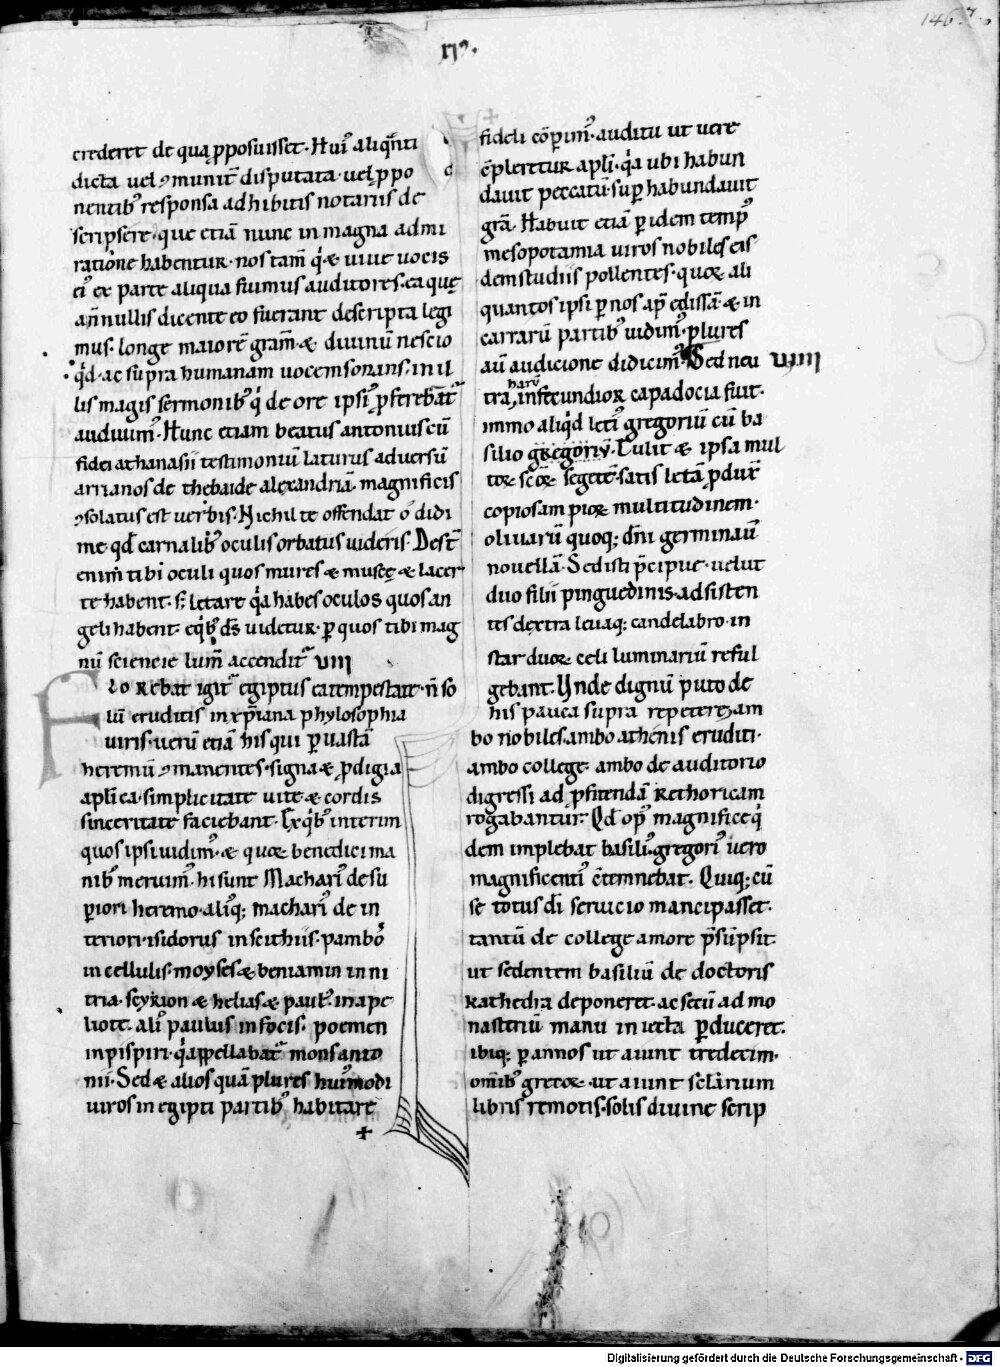 146.
XI9.
crederet de qua pposuisset. Hui9 aliqnti
dicta uel 9munit disputata. uel ppo
nentib9 responsa adhibitis notariis de
scripsere. que etiā nunc in magna admi
ratione habentur. nos tam̄ q̇ & uiue uocis
ei9 ex parte aliqua fuimus auditores. ea quę
an̄nullis dicente eo fuerant descripta legi
mus. longe maiorē gram̄ & diuinū nescio
qd ac supra humanam uocem sonans. in il
lis magis sermonib9 q̇ de ore ipsi9 pferebat̄
audiuim9. Hunc etiam beatus antonius cū
fidei athanasii testimoniū laturus aduersū
arrianos de thebaide alexandriā. magnificis
9solatus est uerbis. Nichil te offendat o didi
me qd carnalib9 oculis orbatus uideris. Dest̄
enim tibi oculi quos mures & muscę & lacer
te habent. s; letare qa habes oculos quos an
geli habent. eqb9 ds uidetur. p quos tibi mag
nū sciencie lum̄ accendit̄ VIII
FLorebat igit̄ egiptus ea tempestate. n̄ so
lū eruditis in xpiana phylosophia
uiris. uerū etiā his qui p uastā
heremū 9manentes. signa & pdigia
aplica. simplicitate uite & cordis
sinceritate faciebant. Exqb9 interim
quos ipsi uidim9. & quoꝝ benedici ma
nib9 meruim9. hi sunt Machari9 de su
piori heremo. aliq; machari9 de in
teriori. isidorus in scithiis. pambo
in cellulis. moyses & beniamin in ni
tria. scyrion & helias & paul9. in ape
liote. ali9 paulus in focis. poemen
in pispiri. q̇ appellabat̄ mons anto
nii. Sed & alios quā plures hui9modi
uiros in egipti partib9 habitare
+
fideli cōperim9. auditu ut uere
cpleretur apli. qa ubi habun
dauit peccatū. sup habundauit
gra. Habuit etiā p idem temp9
mesopotamia uiros nobiles eis
dem studiis pollentes. quoꝝ ali
quantos ipsi p nos ap edissā & in
carrarū partib9 uidim9. plures
aū audicione didicim9. Sed neu VIIII
tra harū infecundior capadocia fuit.
immo aliqd leti9 gregoriū cū ba
silio gregoriū. Tulit & ipsa mul
toꝝ scōꝝ segetē. satis letā pdux̄
copiosam pioꝝ multitudinem.
oliuarū quoq; dni germinaū
nouellā. Sed isti pcipue. uelut
duo filii pinguedinis. adsisten
tes dextra leuaq; candelabro. in
star duoꝝ celi luminariū reful
gebant. Unde dignū puto de
his pauca supra repetere. am
bo nobiles. ambo athenis eruditi.
ambo college. ambo de auditorio
digressi ad pfitendā Rethoricam
rogabantur. Qd op9 magnifice q̇
dem implebat basili9. gregori9 uero
magnificenti9 ctemnebat. Quiq; cū
se totus di seruicio mancipasset.
tantū de college amore psūpsit.
ut sedentem basiliū de doctoris
kathedra deponeret. ac secū ad mo
nasteriū manu iniecta pduceret.
ibiq; p annos ut aiunt tredecim.
omib9 grecoꝝ. ut aiunt sclarium
libris remotis. solis diuine scrip
Digitalisierung gefördert durch die Deutsche Forschungsgemeinschaft - DFG